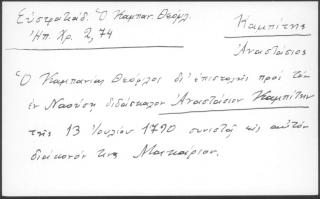 Εὐστρατιάδ. Ὁ Καμπαν. Θεόφλ.
Ἠπ. Χρ. 2, 74
Καμπίτης
Ἀναστάσιος
Ὁ Καμπανίας Θεόφιλος δι' ἐπιστολῆς πρὸς τὸν
ἐν Ναούσῃ διδάσκαλον Ἀναστάσιον Καμπίτην
τῆς 13 Ἰουλίου 1790 συνιστᾷ εἰς αὐτὸν
διάκονόν της Μακάριον.